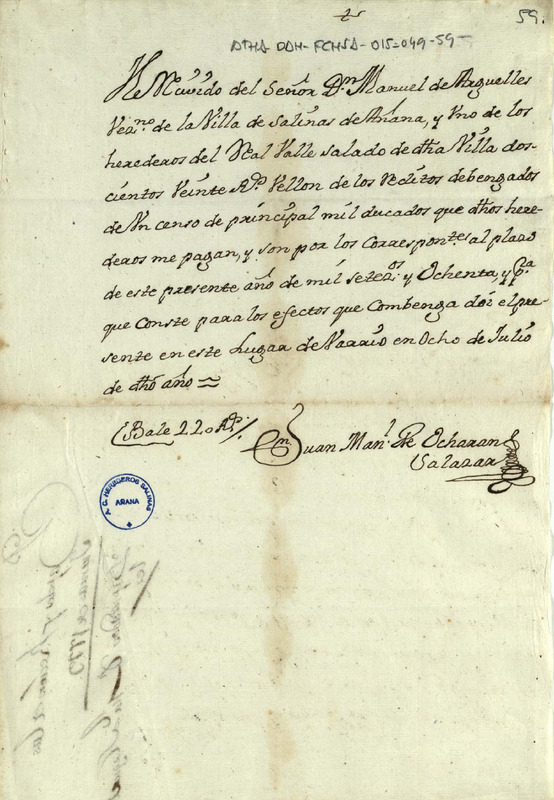 59.
ATHA-DAH-FCHSA-015-049-59
He Rêcivido del Señor Dn Manuel de Arguelles
Vezno de la Villa de Salinas de Añana, y Vno de los
herederos del Real Valle salado de dha Villa dos-
cientos Veinte Rs Vellon de los Reditos debengados
de Vn censo de principal mil ducados que dhos here
deros me pagan, y son por los Correspontes al plazo
de este presente año de mil setezos y Ochenta, y pa
que Conste para los efectos que Combenga doi el pre
sente en este Lugar de Narrio en Ocho de Julio
de dho año
Bale 220 Rs
Juan Manl de Ocharan
Salazar
A. C. HEREDEROS SALINAS
AÑANA